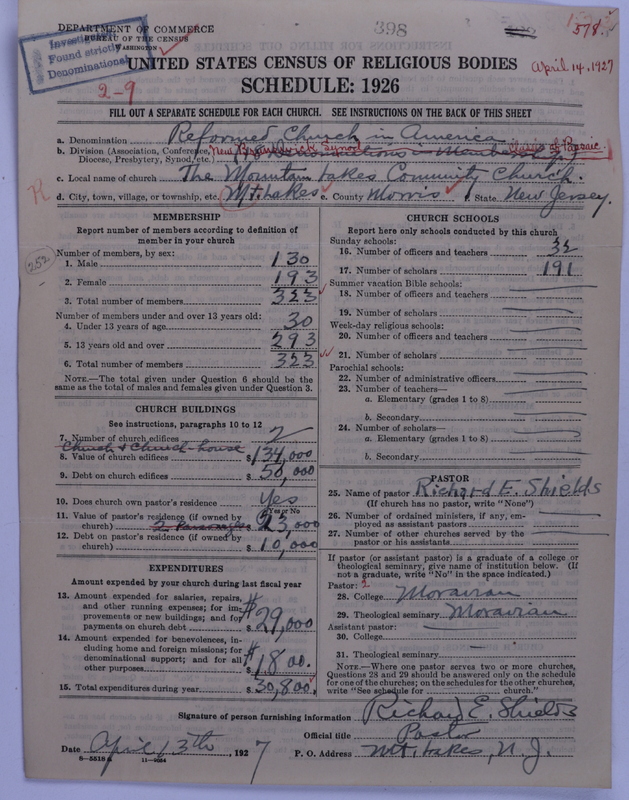 DEPARTMENT OF COMMERCE
BUREAU OF THE CENSUS
WASHINGTON
398
578.
April 14, 1927
Investigated
Found strictly
Denominational
2-9
UNITED STATES CENSUS OF RELIGIOUS BODIES
SCHEDULE: 1926
FILL OUT A SEPARATE SCHEDULE FOR EACH CHURCH. SEE INSTRUCTIONS ON THE BACK OF THIS SHEET
a. Denomination Reformed Church in America
b. Division (Association, Conference, New Brunswick Synod Classis of Passaic
Diocese, Presbytery, Synod, etc.)
c. Local name of church The Mountain Lakes Community Church.
d. City, town, village, or township, etc. Mt. Lakes e. County Morris f. State New Jersey.
MEMBERSHIP
Report number of members according to definition of
member in your church
Number of members, by sex:
252
1. Male 130
2. Female 193
3. Total number of members 323
Number of members under and over 13 years old:
4. Under 13 years of age 30
5. 13 years old and over 293
6. Total number of members 323
NOTE.—The total given under Question 6 should be
same as the total of males and females given under Question 3.
CHURCH BUILDINGS
See instructions, paragraphs 10 to 12
7. Number of church edifices 2
Church & Church-house
8. Value of church edifices $134,000
9. Debt on church edifices $50,000
10. Does church own pastor's residence Yes
Yes or No
11. Value of pastor's residence (if owned by
church) $23,000
12. Debt on pastor's residence (if owned by
church) $10,000
EXPENDITURES
Amount expended by your church during last fiscal year
13. Amount expended for salaries, repairs,
and other running expenses; for im-
provements or new buildings; and for
payments on church debt $29,000
14. Amount expended for benevolences, in-
cluding home and foreign missions; for
denominational support; and for all
other purposes $1800.
15. Total expenditures during year $30,800.
CHURCH SCHOOLS
Report here only schools conducted by this church
Sunday schools:
16. Number of officers and teachers
17. Number of scholars 191
Summer vacation Bible schools:
18. Number of officers and teachers
19. Number of scholars
Week-day religious schools:
20. Number of officers and teachers
21. Number of scholars
Parochial schools:
22. Number of administrative officers
23. Number of teachers—
a. Elementary (grades 1 to 8)
b. Secondary
24. Number of scholars—
a. Elementary (grades 1 to 8)
b. Secondary
PASTOR
25. Name of pastor Richard E. Shields
(If church has no pastor, write "None")
26. Number of ordained ministers, if any, em-
ployed as assistant pastors
27. Number of other churches served by the
pastor or his assistants
If pastor (or assistant pastor) is a graduate of a college or
theological seminary, give name of institution below. (If
not a graduate, write "No" in the space indicated.)
Pastor: 2
28. College Moravian
29. Theological seminary Moravian
Assistant pastor:
30. College
31. Theological seminary
NOTE.—Where one pastor serves two or more churches,
Questions 28 and 29 should be answered only on the schedule
for one of the churches; on the schedules for the other churches,
write "See schedule for church."
Signature of person furnishing information Richard E. Shields
Official title Pastor
Date April 13th, 1927 P. O. Address Mt. Lakes, N. J.
8-5518 a 11-9034